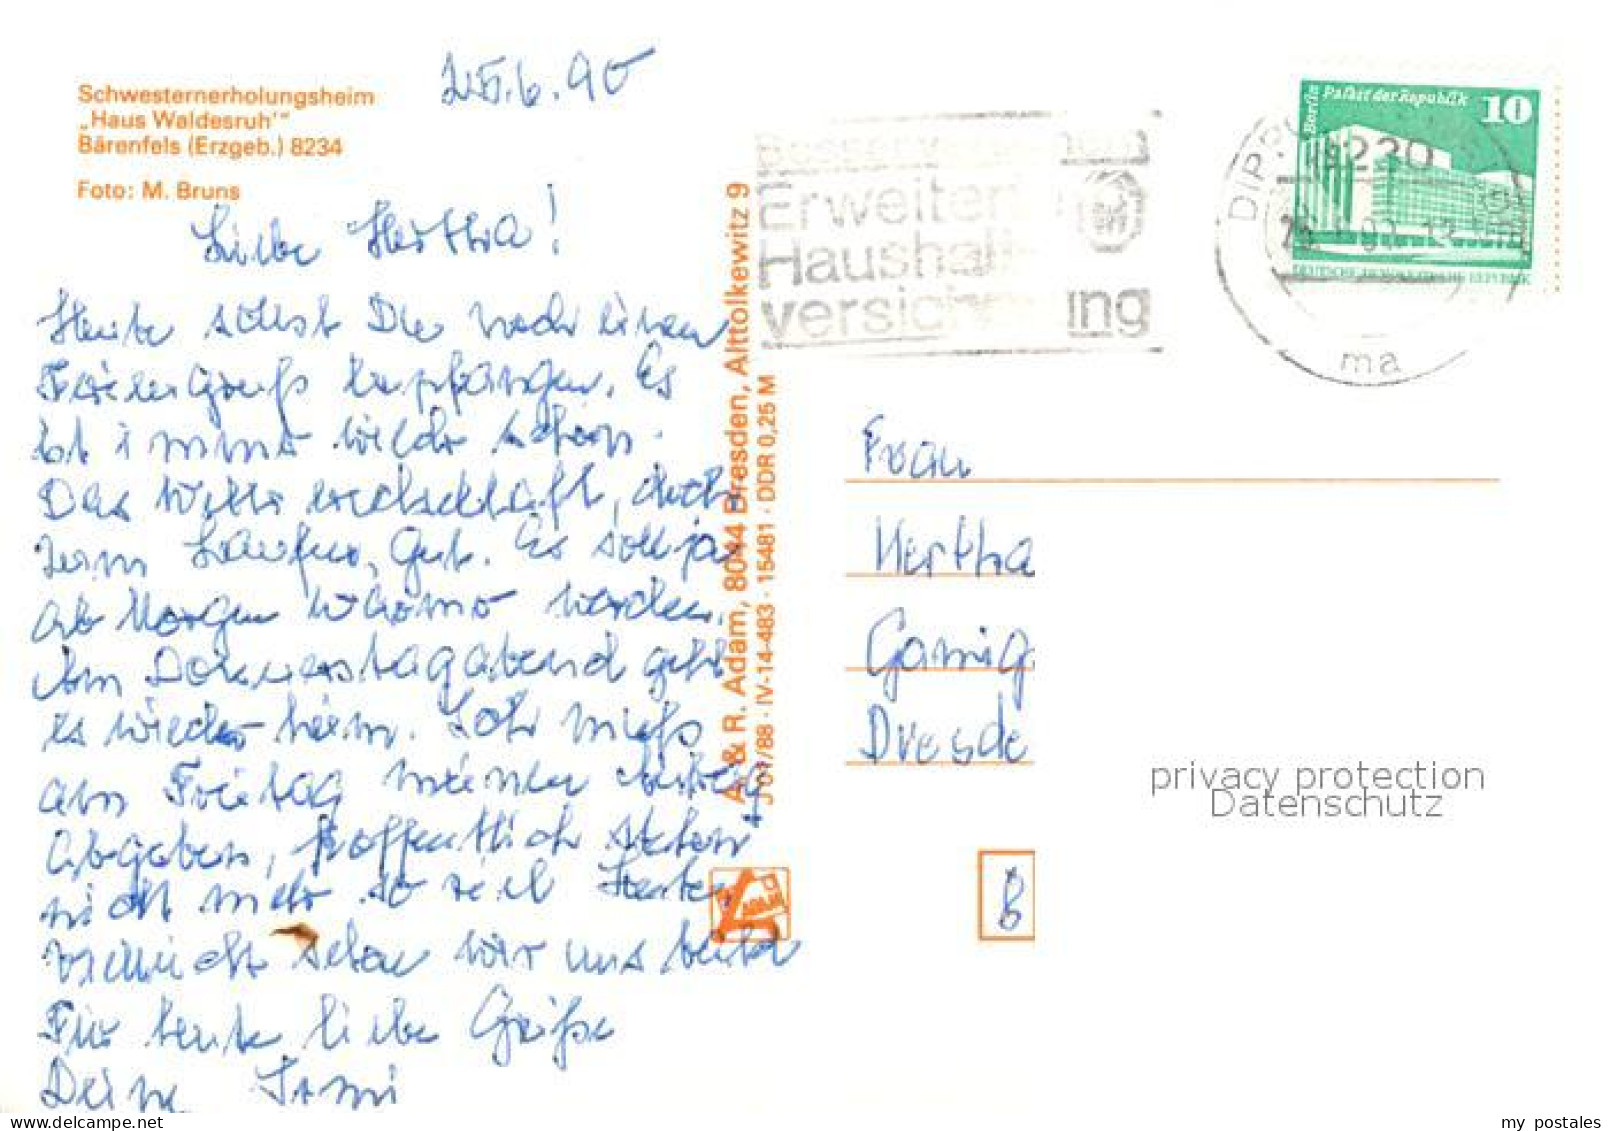 Schwesternerholungsheim
„Haus Waldesruh'"
Bärenfels (Erzgeb.) 8234
Foto: M. Bruns
25.6.90
Liebe Hertha!
Heute sollst Du noch einen
Feriengruß empfangen. Es
ist immer wieder schön.
Das Wetter wechselhaft, doch
zum Laufen, gut. Es soll ja
ab Morgen wärmer werden.
Am Donnerstagabend geht
es wieder heim. Ich muß
am Freitag meinen
Abgeben, hoffentlich stehen
nicht mehr so viel Leute,
vielleicht sehen wir uns bald
Für heute liebe Grüße
Deine
A. & R. Adam, 8044 Dresden, Alttolkewitz 9
J 01/88 · IV-14-483 · 15481 · DDR 0,25 M
ADAM
Erweiterte
Haushalt
versicherung
Berlin Palast der Republik 10
DEUTSCHE DEMOKRATISCHE REPUBLIK
8230
ma
Frau
Hertha
Gamig
Dresde
privacy protection
Datenschutz
my postales